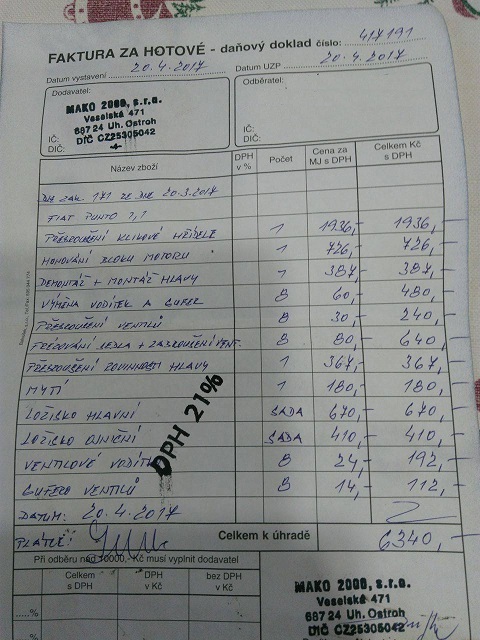 FAKTURA ZA HOTOVÉ - daňový doklad číslo: 417191
Datum vystavení 20.4.2017 Datum UZP 20.4.2017
Dodavatel: Odběratel:
MAKO 2000, s.r.o.
Veselská 471
687 24 Uh. Ostroh
DIČ CZ25305042
IČ: IČ:
DIČ: DIČ:
Název zboží DPH v % Počet Cena za MJ s DPH Celkem Kč s DPH
DLE ZAK. 171 ZE DNE 20.3.2017
FIAT PUNTO 1,1
PŘEBROUŠENÍ KLIKOVÉ HŘÍDELE 1 1936,- 1936,-
HONOVÁNÍ BLOKU MOTORU 1 726,- 726,-
DEMONTÁŽ + MONTÁŽ HLAVY 1 387,- 387,-
VÝMĚNA VODÍTEK A GUFER 8 60,- 480,-
PŘEBROUŠENÍ VENTILŮ 8 30,- 240,-
FRÉZOVÁNÍ SEDLA + ZABROUŠENÍ VENT. 8 80,- 640,-
PŘEBROUŠENÍ ROVINNOSTI HLAVY 1 367,- 367,-
MYTÍ 1 180,- 180,-
LOŽISKO HLAVNÍ SADA 670,- 670,-
LOŽISKO OJNIČNÍ SADA 410,- 410,-
VENTILOVÉ VODÍTK 8 24,- 192,-
GUFERO VENTILŮ 8 14,- 112,-
DPH 21%
DATUM: 20.4.2017
PLATCE: Celkem k úhradě 6340,-
Při odběru nad 10000,- Kč musí vyplnit dodavatel
Celkem s DPH DPH v Kč bez DPH v Kč
.....%
%
MAKO 2000, s.r.o.
Veselská 471
687 24 Uh. Ostroh
DIČ CZ25305042